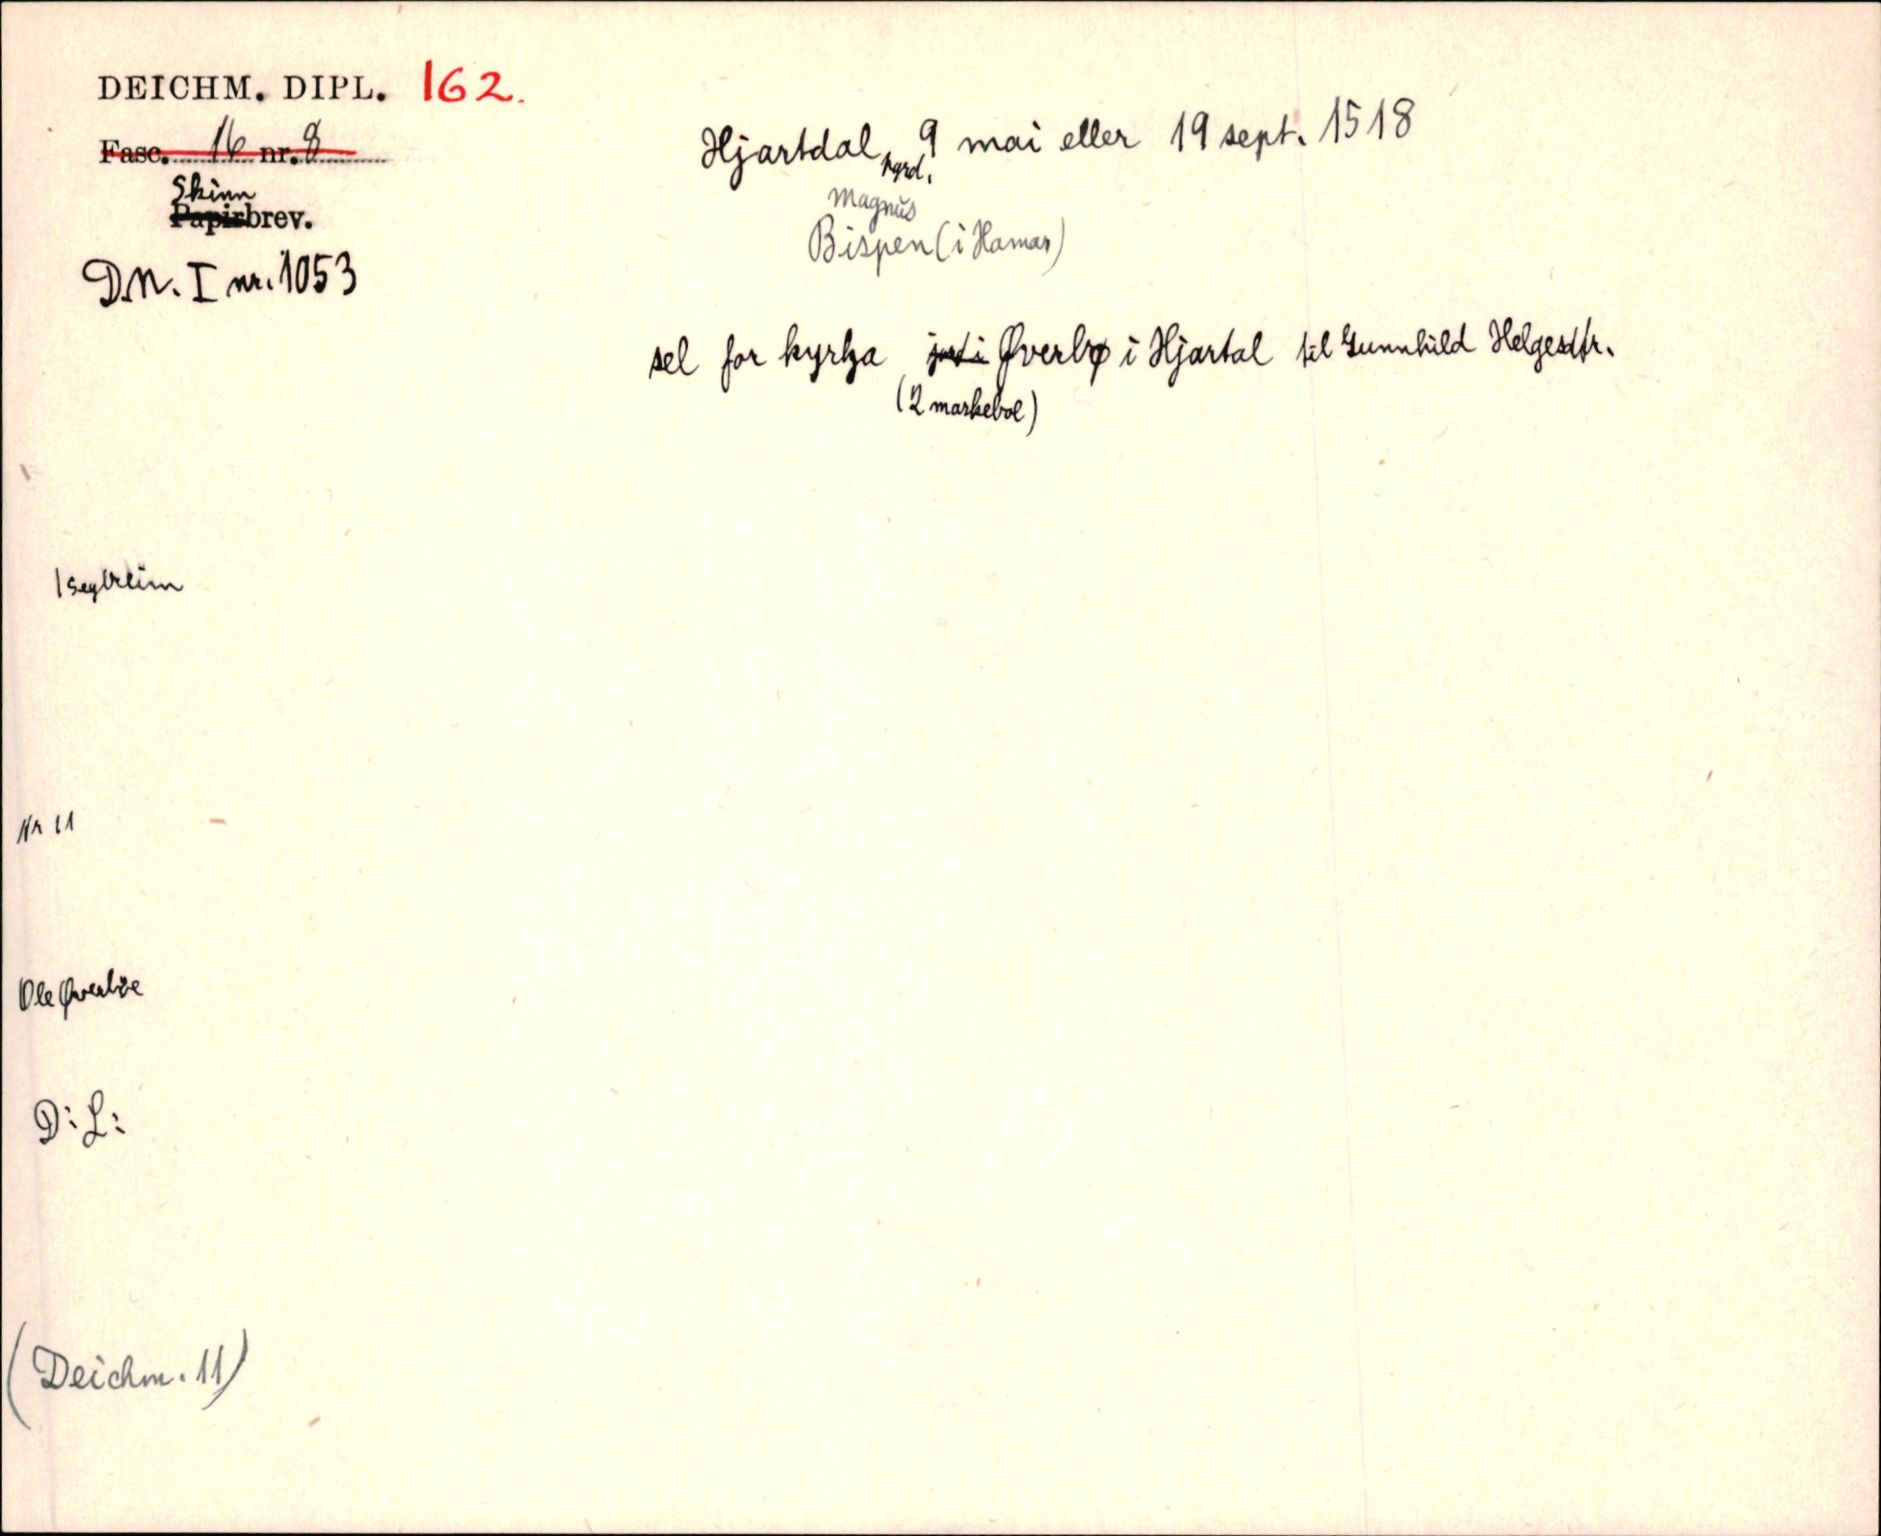 DEICHM. DIPL. 162.
Fasc. 16 nr. 8
Skinn
Papirbrev.
D.N. I nr. 1053
Hjartdal, 9 mai eller 19 sept. 1518
prgrd.
Magnus
Bispen (i Hamar)
sel for kyrkja jord i Øverbø i Hjartal til Gunnhild Helgesdtr.
(2 markebol)
1 seglreim
Nr 11
Ole Øverbøe
D: L:
(Deichm. 11)